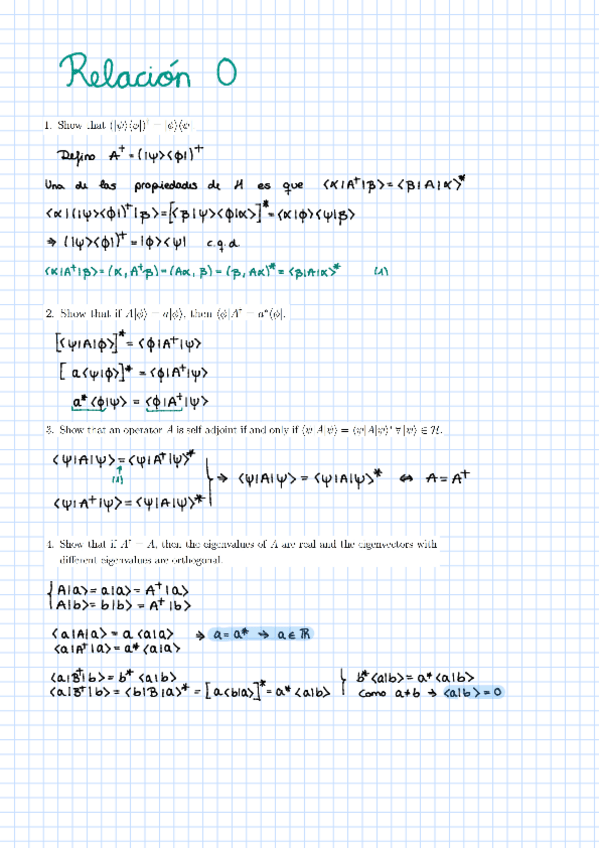 Relación 0
1. Show that (|ψ⟩⟨φ|)† = |φ⟩⟨ψ|
Defino A⁺ = (|ψ⟩⟨φ|)⁺
Una de las propiedades de H es que ⟨α|A⁺|β⟩ = ⟨β|A|α⟩*
⟨α|(|ψ⟩⟨φ|)⁺|β⟩ = [⟨β|ψ⟩⟨φ|α⟩]* = ⟨α|φ⟩⟨ψ|β⟩
⇒ (|ψ⟩⟨φ|)⁺ = |φ⟩⟨ψ| c.q.d.
⟨α|A⁺|β⟩ = (α, A⁺β) = (Aα, β) = (β, Aα)* = ⟨β|A|α⟩* (1)
2. Show that if A|φ⟩ = a|φ⟩, then ⟨φ|A† = a*⟨φ|.
[⟨ψ|A|φ⟩]* = ⟨φ|A⁺|ψ⟩
[a⟨ψ|φ⟩]* = ⟨φ|A⁺|ψ⟩
a*⟨φ|ψ⟩ = ⟨φ|A⁺|ψ⟩
3. Show that an operator A is self adjoint if and only if ⟨ψ|A|ψ⟩ = ⟨ψ|A|ψ⟩* ∀|ψ⟩ ∈ H.
⟨ψ|A|ψ⟩ = ⟨ψ|A⁺|ψ⟩*
(1)
⇒ ⟨ψ|A|ψ⟩ = ⟨ψ|A|ψ⟩* ⇔ A = A⁺
⟨ψ|A⁺|ψ⟩ = ⟨ψ|A|ψ⟩*
4. Show that if A† = A, then the eigenvalues of A are real and the eigenvectors with
different eigenvalues are orthogonal.
{ A|a⟩ = a|a⟩ = A⁺|a⟩
A|b⟩ = b|b⟩ = A⁺|b⟩
⟨a|A|a⟩ = a⟨a|a⟩ ⇒ a = a* → a ∈ ℝ
⟨a|A⁺|a⟩ = a*⟨a|a⟩
⟨a|B⁺|b⟩ = b*⟨a|b⟩ } b*⟨a|b⟩ = a*⟨a|b⟩
⟨a|B⁺|b⟩ = ⟨b|B|a⟩* = [a⟨b|a⟩]* = a*⟨a|b⟩ Como a≠b → ⟨a|b⟩ = 0